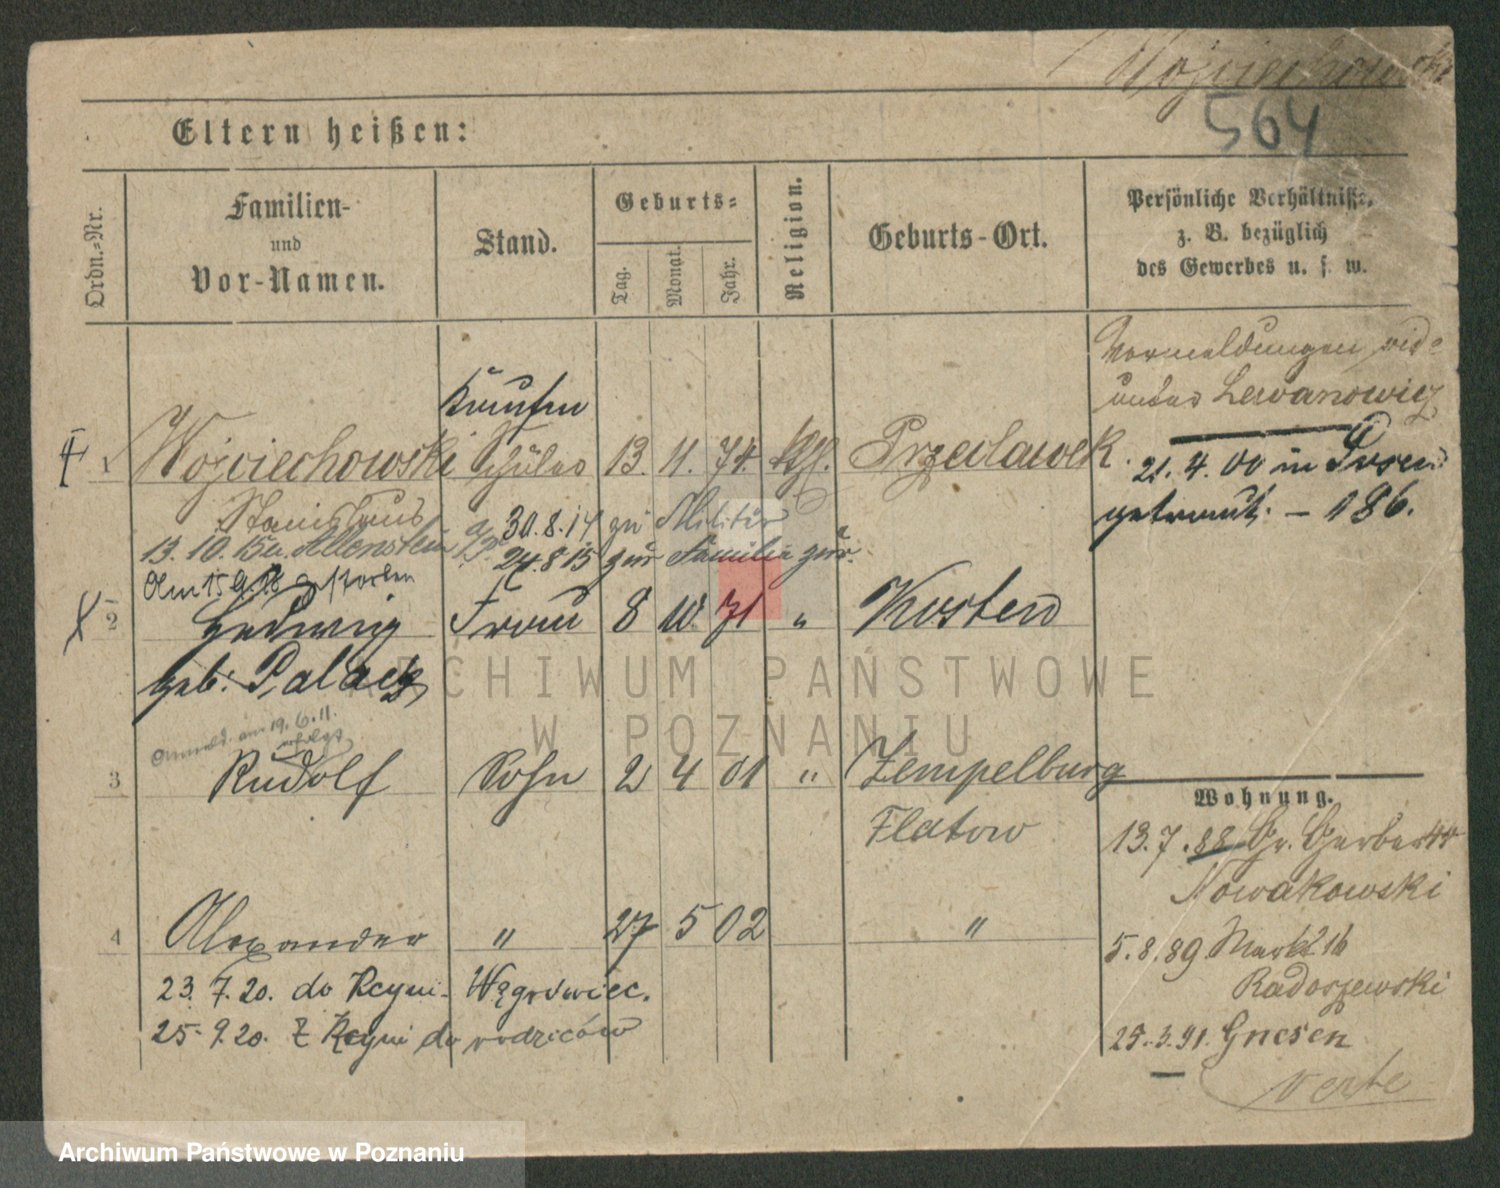 Wojciechowski
564
Eltern heißen:
Ordn.=Nr.
Familien-
und
Vor-Namen.
Stand.
Geburts=
Tag.
Monat.
Jahr.
Religion.
Geburts-Ort.
Persönliche Verhältnisse,
z. B. bezüglich
des Gewerbes u. s. w.
Vormeldungen
unter Lewanowicz
Kaufm
1 Wojciechowski Schüler 13. 11. 74. kth. Przeclawek
21. 4. 00 in Posen
getraut. – 186.
Stanislaus 30.8.14 zu Militär
13. 10. 15 a. Allenstein 24.8 15 zur Familie zur.
Am 15.9.18 gestorben
2 Hedwig Frau 8 10. 71 " Kosten
geb: Palacz
Anmeld. am 19.6.11.
erfolgt
3 Rudolf Sohn 2 4 01 " Zempelburg
Flatow
4 Alexander " 27 5 02 "
23. 7. 20. do Kcyni - Wągrowiec.
25. 9. 20. Z Kcyni do rodziców
Wohnung.
13.7.88 Gr. Gerber 44
Nowakowski
5.8.89 Markt
Radoszewski
25.3.91. Gnesen
verte
ARCHIWUM PAŃSTWOWE
W POZNANIU
Archiwum Państwowe w Poznaniu